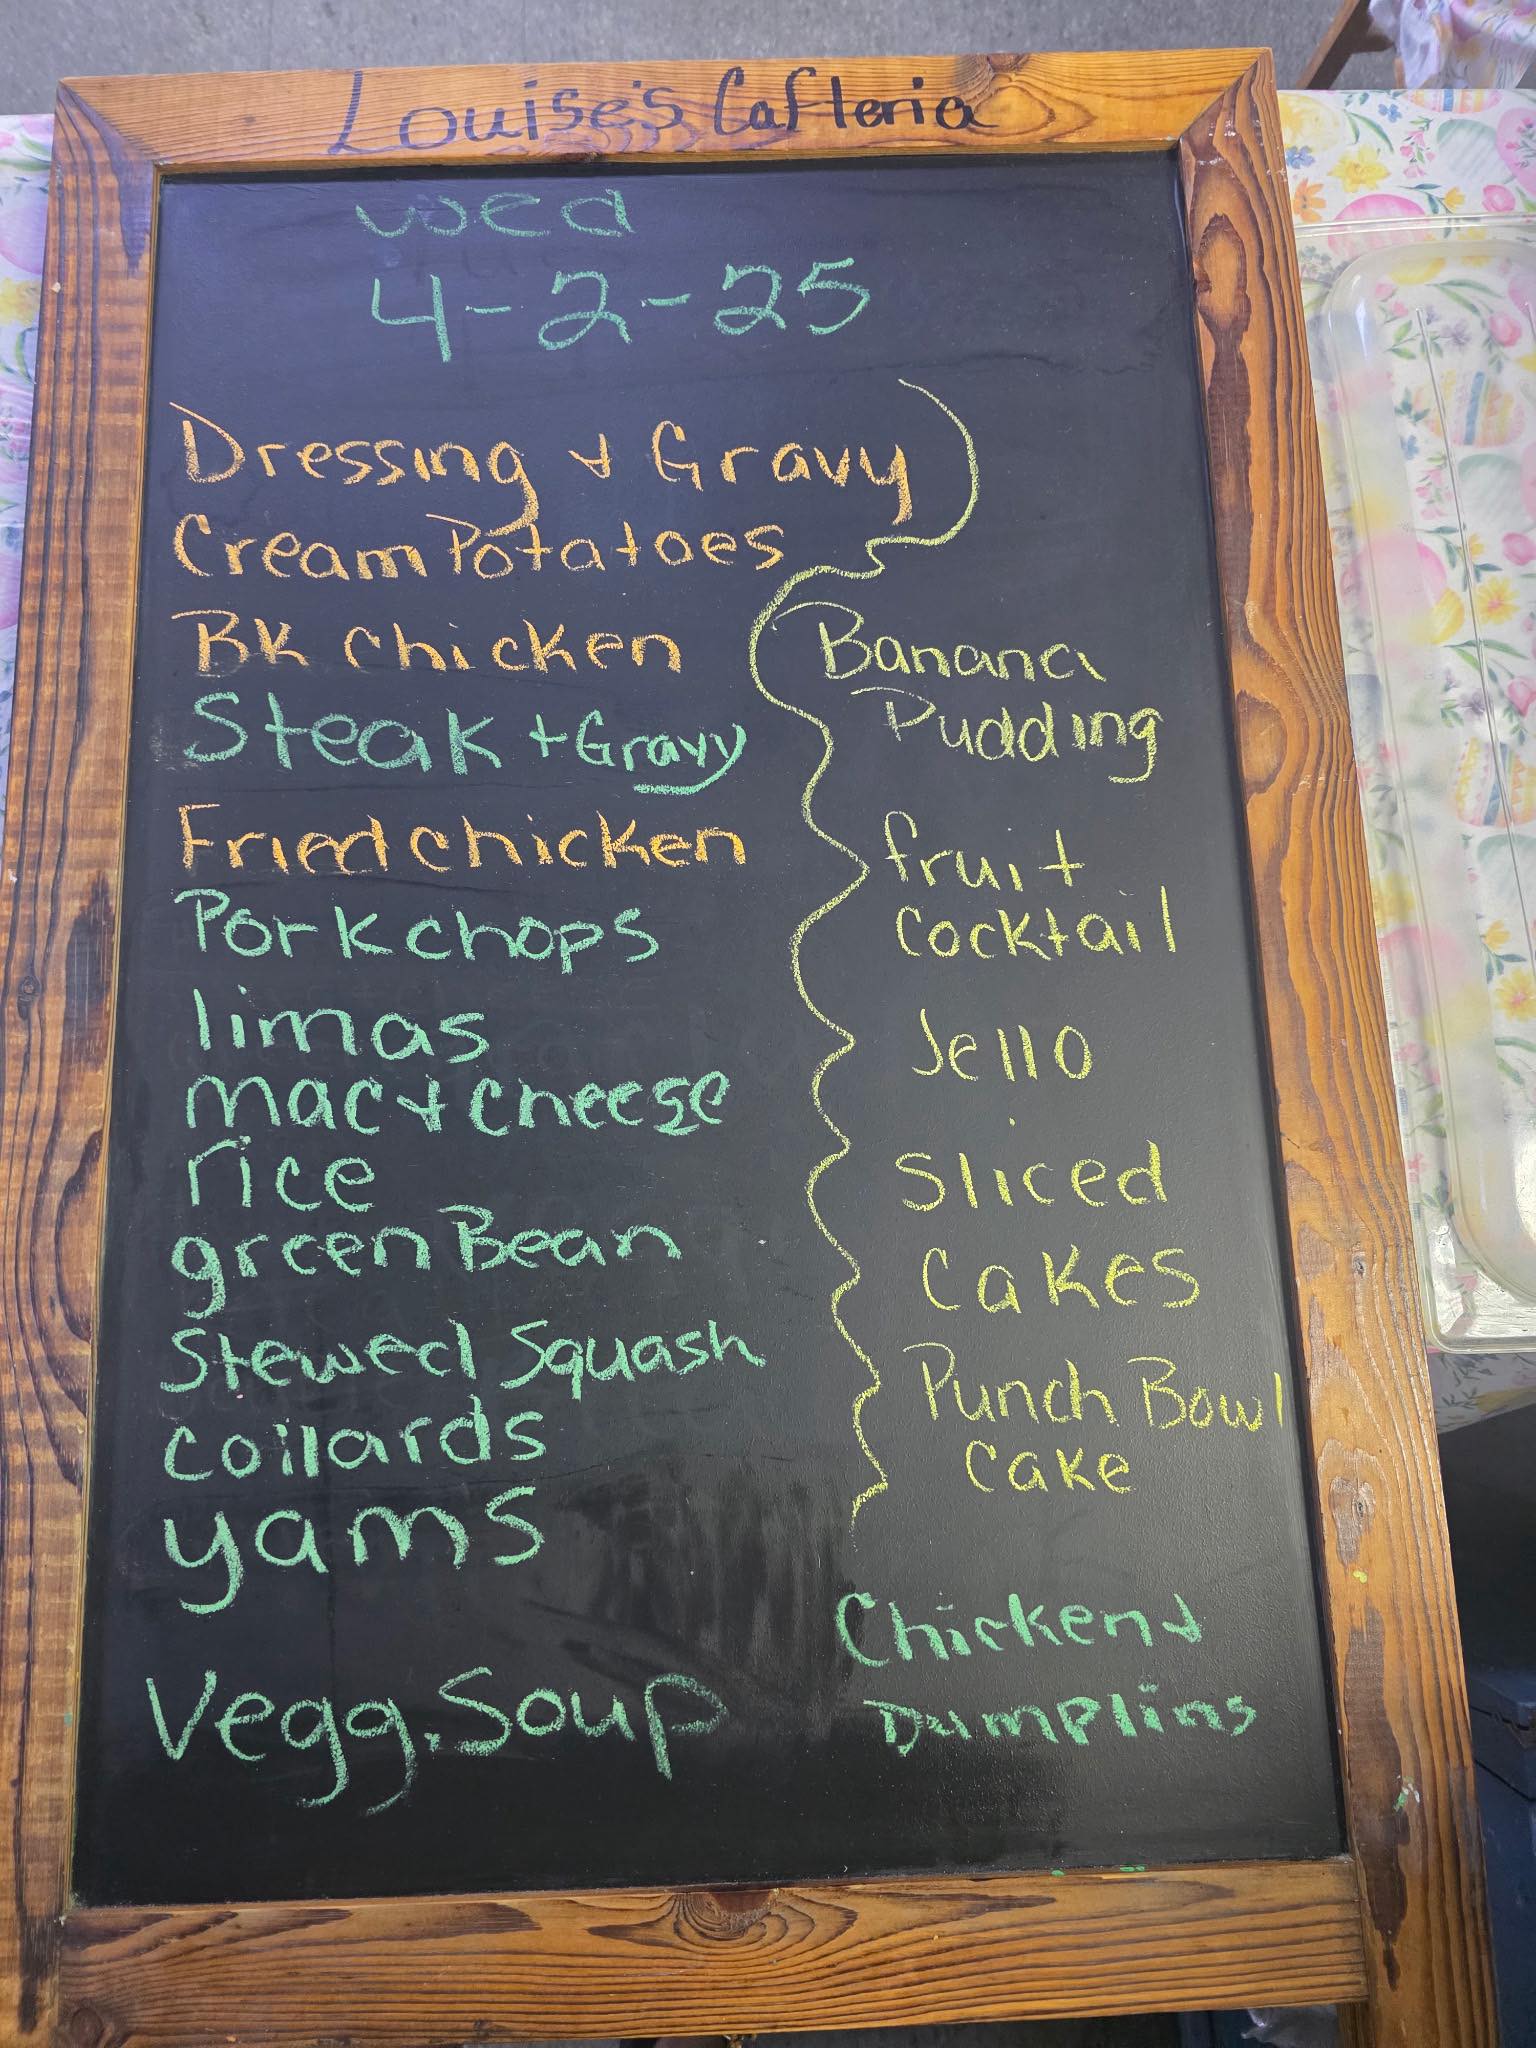 Louise's Cafteria
wed
4-2-25
Dressing & Gravy
Cream Potatoes
BK chicken
Steak + Gravy
Fried chicken
Pork chops
limas
mac + cheese
rice
green Bean
Stewed Squash
collards
yams
Vegg. Soup
Banana
Pudding
fruit
Cocktail
Jello
Sliced
Cakes
Punch Bowl
Cake
Chicken &
Dumplins